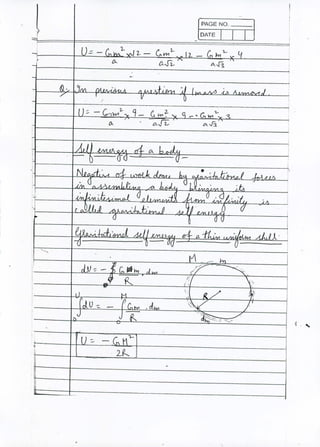 PAGE NO.
DATE
U = - Gm²/a x 12 - Gm²/a√2 x 12 - Gm²/a√3 x 4
Q:- In previous question if 1 mass is removed.
U = - Gm²/a x 9 - Gm²/a√2 x 9 - Gm²/a√3 x 3
Self energy of a body -
Negative of work done by gravitational forces
in assembling a body bringing its
infinitesimal elements from infinity is
called gravitational self energy
Gravitational self energy of a thin uniform shell:
M m
dU = - G m . dm
R
U M
∫dU = - ∫ Gm . dm
0 0 R
R
dm
U = - GM²
2R